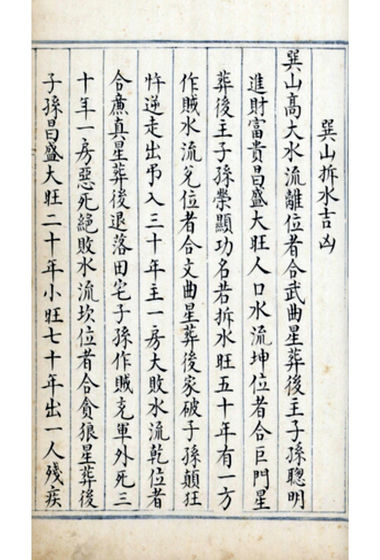 巽山拆水吉凶
巽山高大水流離位者合武曲星葬後主子孫聰明
進財富貴昌盛大旺人口水流坤位者合巨門星
葬後主子孫榮顯功名若拆水旺五十年有一方
作賊水流兌位者合文曲星葬後家破子孫顛狂
忤逆走出吊入三十年主一房大敗水流乾位者
合廉真星葬後退落田宅子孫作賊充軍外死三
十年一房惡死絕敗水流坎位者合貪狼星葬後
子孫昌盛大旺二十年小旺七十年出一人殘疾